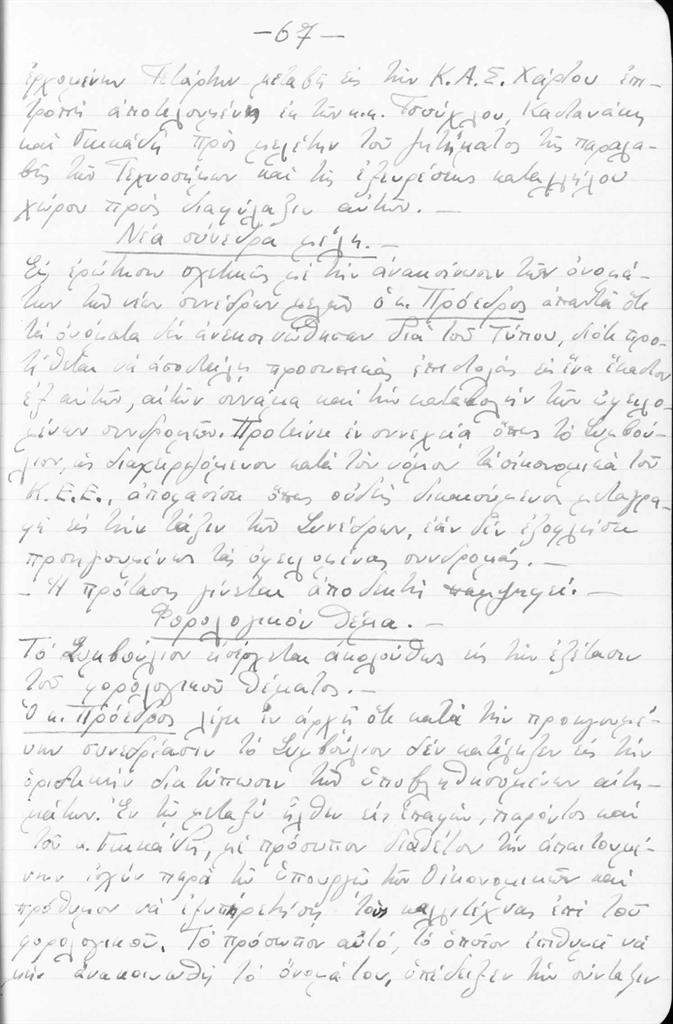 -67-
ἐρχομένην Τετάρτην μεταβῇ εἰς τὴν Κ.Α.Σ. Χάρτου ἐπι-
τροπὴ ἀποτελουμένη ἐκ τῶν κ.κ. Τσούχλου, Καστανάκη
καὶ πρὸς μελέτην τοῦ ζητήματος τῆς παραλα-
βῆς τῶν Τεχνοσήμων καὶ τῆς ἐξευρέσεως καταλλήλου
χώρου πρὸς διαφύλαξιν αὐτῶν. -
Νέα σύνεδρα μέλη. -
Εἰς ἐρώτησιν σχετικῶς μὲ τὴν ἀνακοίνωσιν τῶν ὀνομά-
των τῶν νέων συνέδρων μελῶν ὁ κ. Πρόεδρος ἀπαντᾶ ὅτι
τὰ ὀνόματα δὲν ἀνεκοινώθησαν διὰ τοῦ Τύπου, διότι προ-
τίθεται νὰ ἀποστείλῃ προσωπικὰς ἐπιστολὰς εἰς ἕνα ἕκαστον
ἐξ αὐτῶν, αἰτῶν συνάμα καὶ τὴν καταβολὴν τῶν ὀφειλο-
μένων συνδρομῶν. Προτείνει ἐν συνεχείᾳ ὅπως τὸ Συμβού-
λιον, ὡς διαχειριζόμενον κατὰ τὸν νόμον τὰ οἰκονομικὰ τοῦ
Κ.Ε.Ε., ἀποφασίσῃ ὅπως οὐδεὶς δικαιούμενος μεταγρα-
φῇ εἰς τὴν τάξιν τῶν Συνέδρων, ἐὰν δὲν ἐξοφλήσῃ
προηγουμένως τὰς ὀφειλομένας συνδρομάς. -
- Ἡ πρότασις γίνεται ἀποδεκτὴ παμψηφεί. -
Φορολογικὸν θέμα. -
Τὸ Συμβούλιον εἰσέρχεται ἀκολούθως εἰς τὴν ἐξέτασιν
τοῦ φορολογικοῦ θέματος. -
Ὁ κ. Πρόεδρος λέγει ἐν ἀρχῇ ὅτι κατὰ τὴν προηγουμέ-
νην συνεδρίασιν τὸ Συμβούλιον δὲν κατέληξεν εἰς τὴν
ὁριστικὴν διατύπωσιν τῶν ὑποβληθησομένων αἰτη-
μάτων. Ἐν τῷ μεταξὺ ἦλθεν εἰς ἐπαφήν, παρόντος καὶ
τοῦ κ. μὲ πρόσωπον διαθέτον τὴν ἀπαιτουμέ-
νην ἰσχὺν παρὰ τῷ Ὑπουργῷ τῶν Οἰκονομικῶν καὶ
πρόθυμον νὰ ἐξυπηρετήσῃ τοὺς καλλιτέχνας ἐπὶ τοῦ
φορολογικοῦ. Τὸ πρόσωπον αὐτό, τὸ ὁποῖον ἐπιθυμεῖ νὰ
μὴν ἀνακοινωθῇ τὸ ὄνομά του, ὑπέδειξεν τὴν σύνταξιν